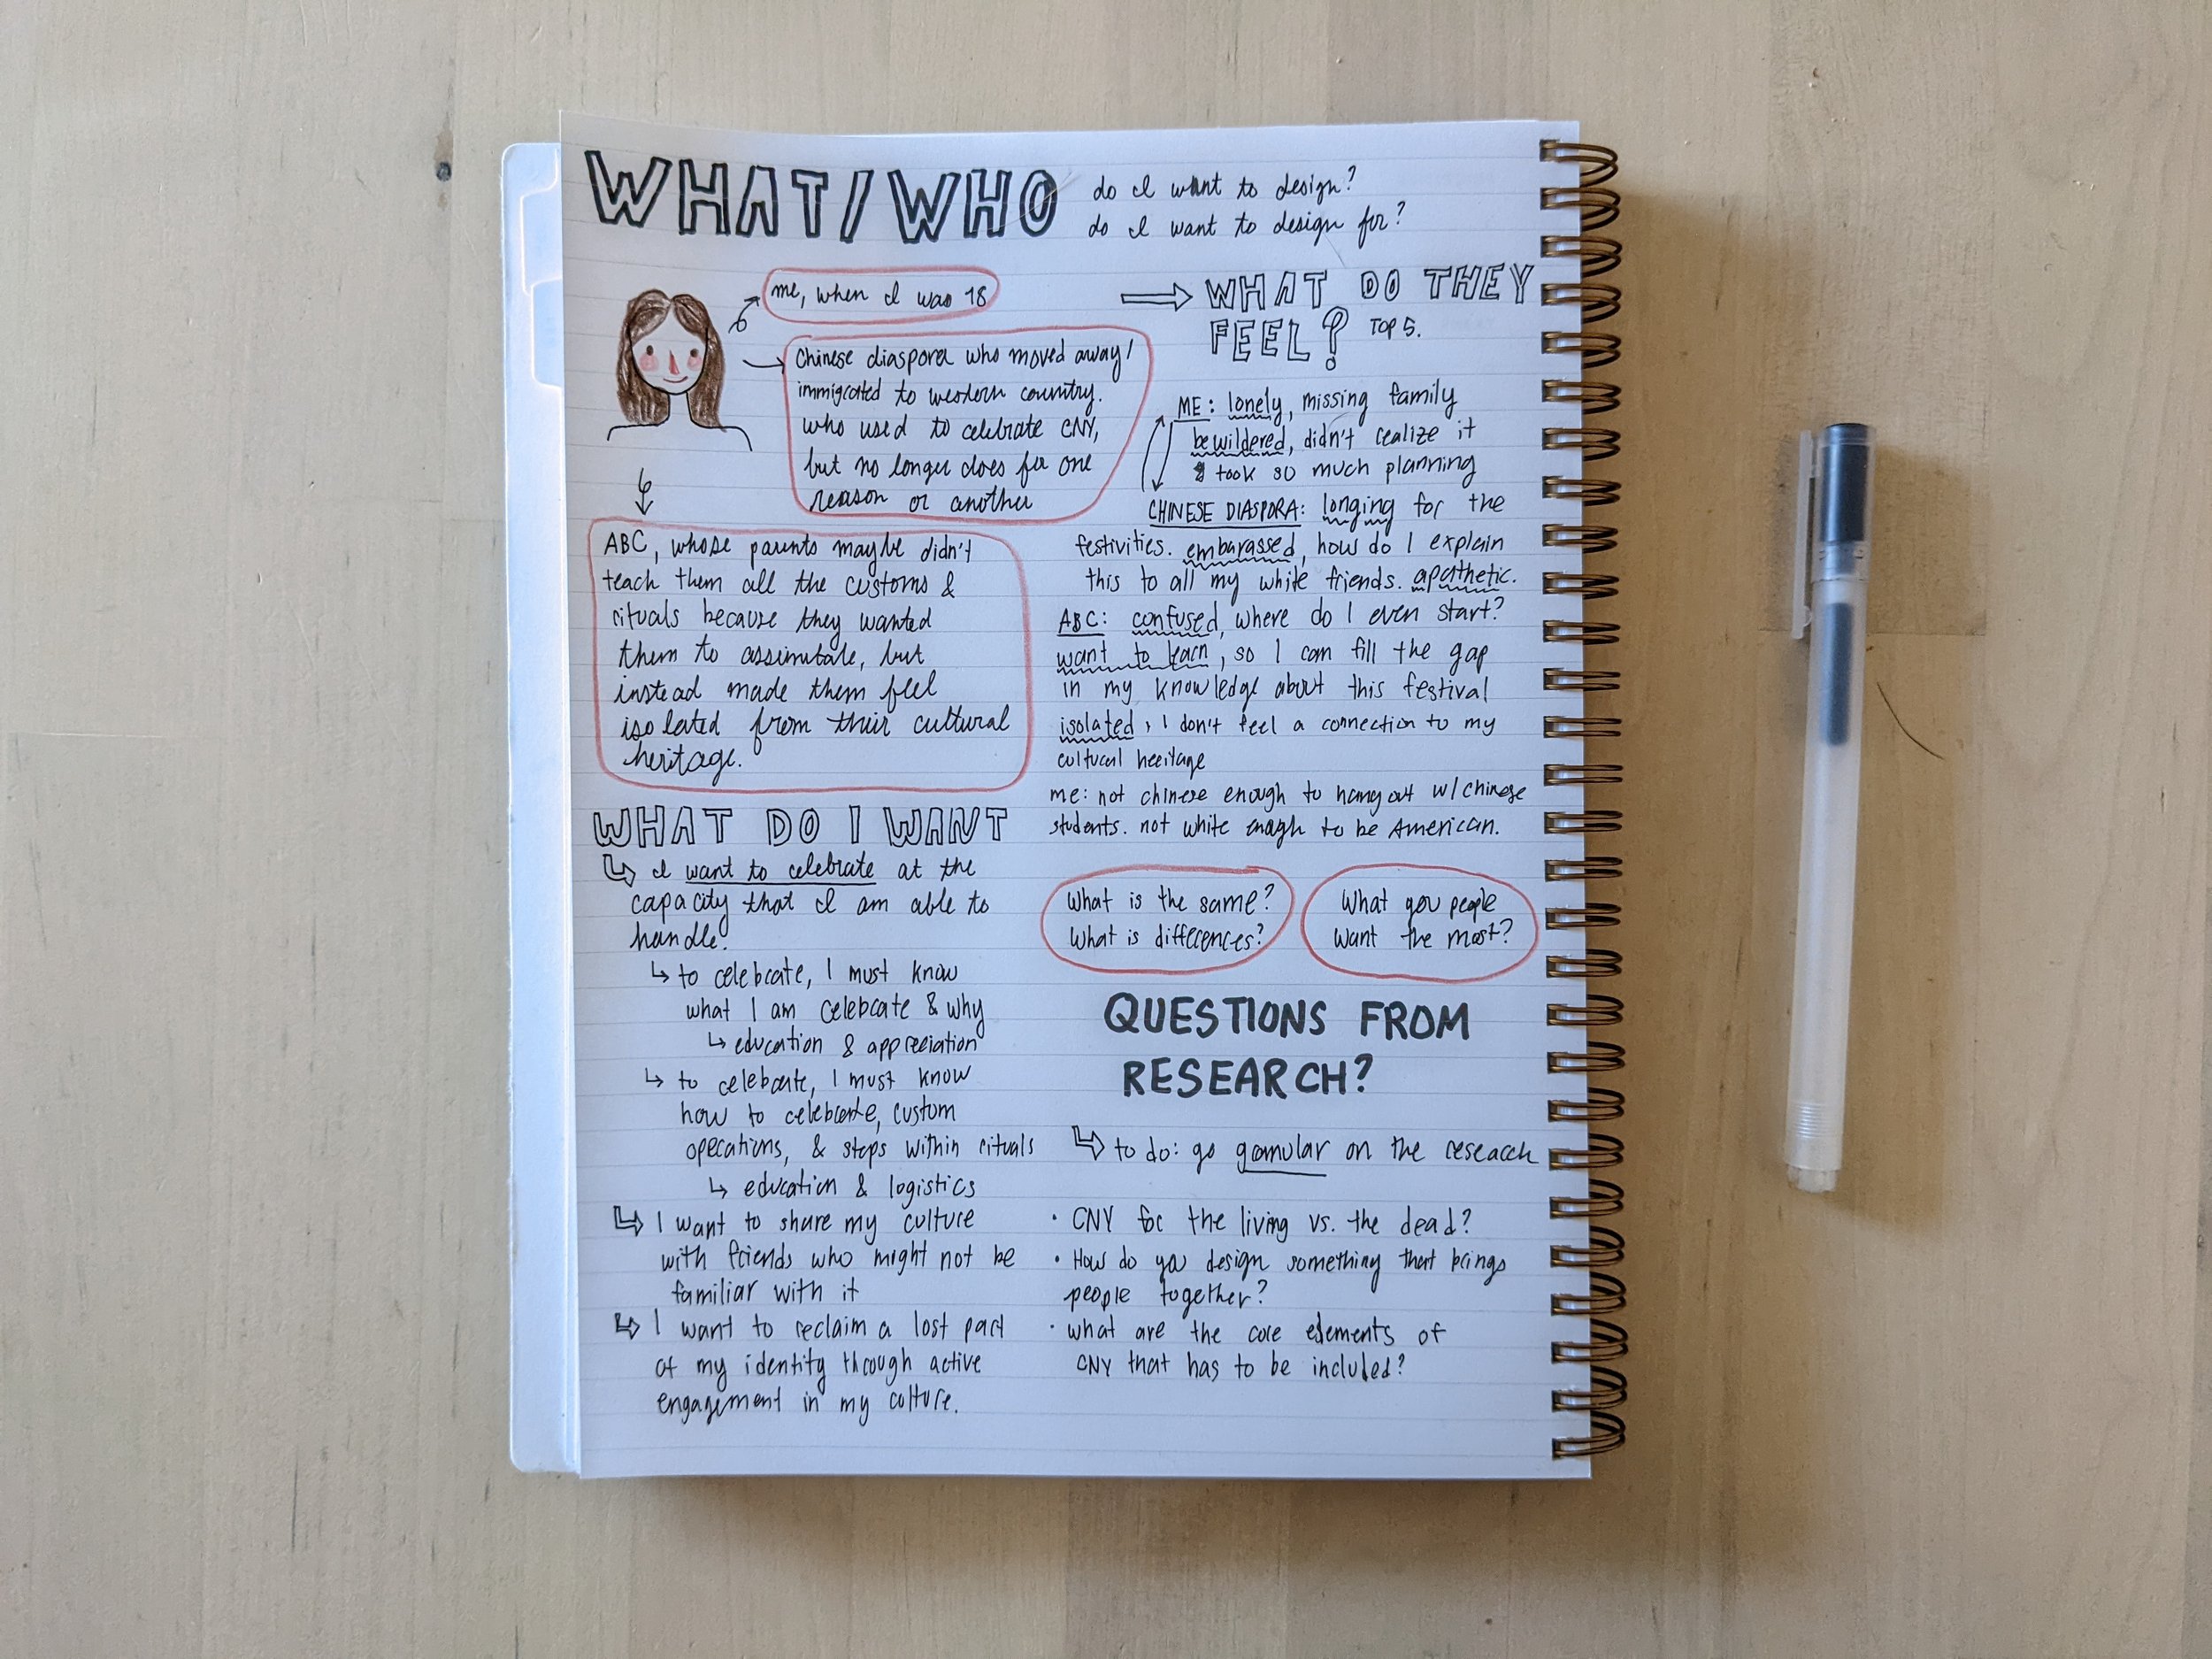 WHAT/WHO
do I want to design?
do I want to design for?
me, when I was 18
Chinese diaspora who moved away/
immigrated to western country.
who used to celebrate CNY,
but no longer does for one
reason or another
ABC, whose parents maybe didn't
teach them all the customs &
rituals because they wanted
them to assimilate, but
instead made them feel
isolated from their cultural
heritage.
WHAT DO I WANT
I want to celebrate at the
capacity that I am able to
handle.
to celebrate, I must know
what I am celebrate & why
education & appreciation
to celebrate, I must know
how to celebrate, custom
operations, & steps within rituals
education & logistics
I want to share my culture
with friends who might not be
familiar with it
I want to reclaim a lost part
of my identity through active
engagement in my culture.
WHAT DO THEY
FEEL? TOP 5.
ME: lonely, missing family
bewildered, didn't realize it
took so much planning
CHINESE DIASPORA: longing for the
festivities. embarassed, how do I explain
this to all my white friends. apathetic.
ABC: confused, where do I even start?
want to learn, so I can fill the gap
in my knowledge about this festival
isolated, I don't feel a connection to my
cultural heritage
me: not chinese enough to hang out w/ chinese
students. not white enough to be American.
What is the same?
What is differences?
What you people
want the most?
QUESTIONS FROM
RESEARCH?
to do: go granular on the research
• CNY for the living vs. the dead?
• How do you design something that brings
people together?
• what are the core elements of
CNY that has to be included?